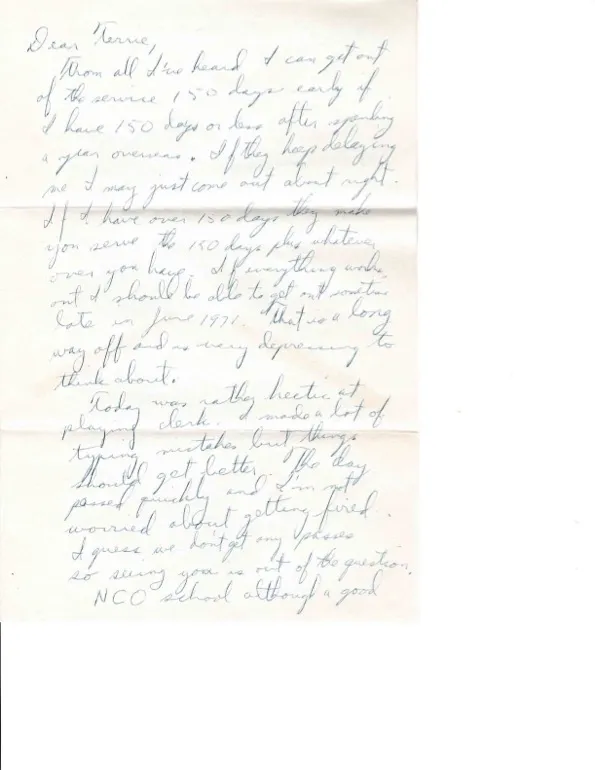 Dear Terrie,
From all I've heard I can get out
of the service 150 days early if
I have 150 days or less after spending
a year overseas. If they keep delaying
me I may just come out about right.
If I have over 150 days they make
you serve the 150 days plus whatever
over you have. If everything works
out I should be able to get out sometime
late in June 1971. That is a long
way off and is very depressing to
think about.
Today was rather hectic at
playing clerk. I made a lot of
typing mistakes but things
should get better. The day
passed quickly and I'm not
worried about getting fired.
I guess we don't get any passes
so seeing you is out of the question.
NCO school although a good